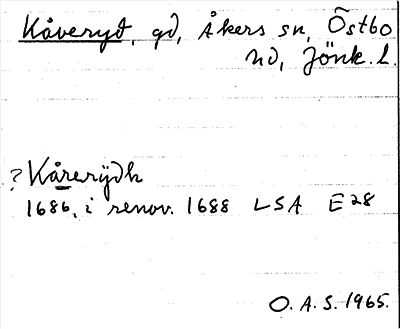 Kåveryd, gd, Åkers sn, Östbo
hd, Jönk. l.
? Kårerÿdh
1686, i renov. 1688 LSA E28
O. A. S. 1965.